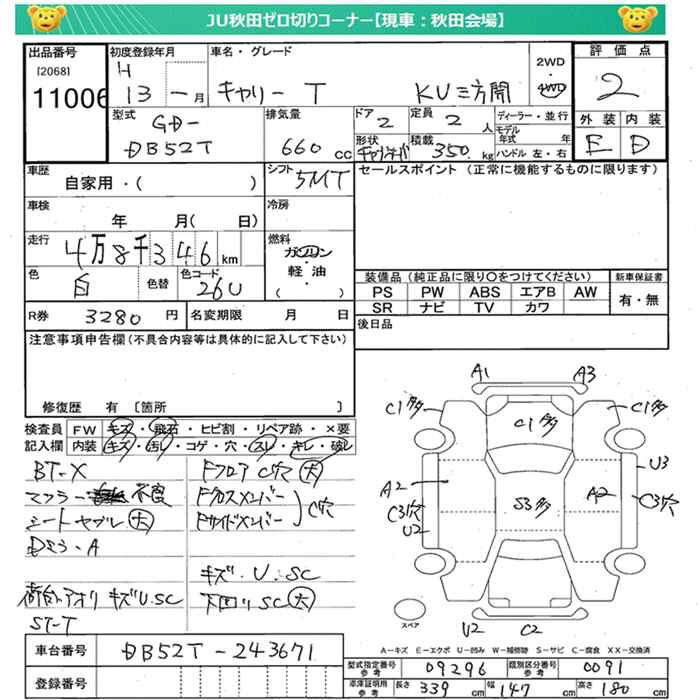 JU秋田ゼロ切りコーナー【現車：秋田会場】
出品番号
[2068]
11006
初度登録年月
H
13 ー 月
車名・グレード
キャリー T KU三方開
2WD
4WD
評価点
2
型式
GD-
DB52T
排気量
660 cc
ドア
2
定員
2 人
ディーラー・並行
モデル年式 年
ハンドル 左・右
形状
積載
350 kg
外装 内装
E D
車歴
自家用・( )
シフト
5MT
セールスポイント (正常に機能するものに限ります)
車検
年 月( 日)
冷房
走行
4万8千346 km
燃料
ガソリン
・
軽油
・
( )
色
白
色替
色コード
26U
装備品 (純正品に限り○をつけてください)
PS PW ABS エアB AW
SR ナビ TV カワ
新車保証書
有・無
R券 3280 円
名変期限 月 日
後日品
注意事項申告欄(不具合内容等は具体的に記入して下さい)
修復歴 有 〔箇所 〕
検査員記入欄
FW キズ・飛石・ヒビ割・リペア跡・×要
内装 キズ・汚れ・コゲ・穴・スレ・キレ・破レ
BT-X
マフラー 不良
シートヤブレ 大
Dミラ-A
荷台アオリ キズU.SC
ST-T
Fフロア C穴 大
Fクロスメンバー
Fサイドメンバー
C穴
キズ.U.SC
下回りSC 大
A1
A3
C1多
C1多
C1多
U3
A2
S3多
A2
C3穴
C3穴
U2
スペア
U2
C2
A－キズ E－エクボ U－凹み W－補修跡 S－サビ C－腐食 XX－交換済
車台番号 DB52T-243671
登録番号
型式指定番号 参考 09296
類別区分番号 参考 0091
車庫証明用 参考 長さ 339 cm 幅 147 cm 高さ 180 cm